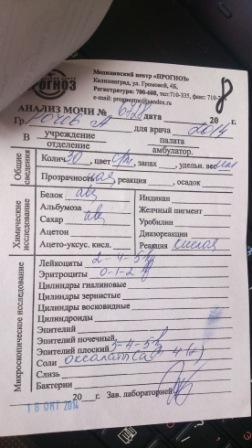 Медицинский центр «ПРОГНОЗ»
Калининград, ул. Громовой, 4Б,
Регистратура: 700-688, тел:710-335, факс: 710-
ПРОГНОЗ
АНАЛИЗ МОЧИ № дата 20 г.
Гр. для врача 2014
В учреждение палата
отделение амбулатор.
Общие сведения
Колич. 30, цвет с/ж, запах , удельн. вес
Прозрачность , реакция , осадок
Химические исследование
Белок abs Индикан
Альбумоза Желчный пигмент
Сахар abs Уробилин
Ацетон Диазореакции
Ацето-уксус. кисл. Реакция кислая
Микроскопическое исследование
Лейкоциты 2-4-5
Эритроциты 0-1-2
Цилиндры гиалиновые
Цилиндры зернистые
Цилиндры восковидные
Цилиндроиды
Эпителий
Эпителий почечный
Эпителий плоский 3-4-5
Соли оксалаты
Слизь
Бактерии
20 г. Зав. лабораторией
16 ОКТ 2014
8